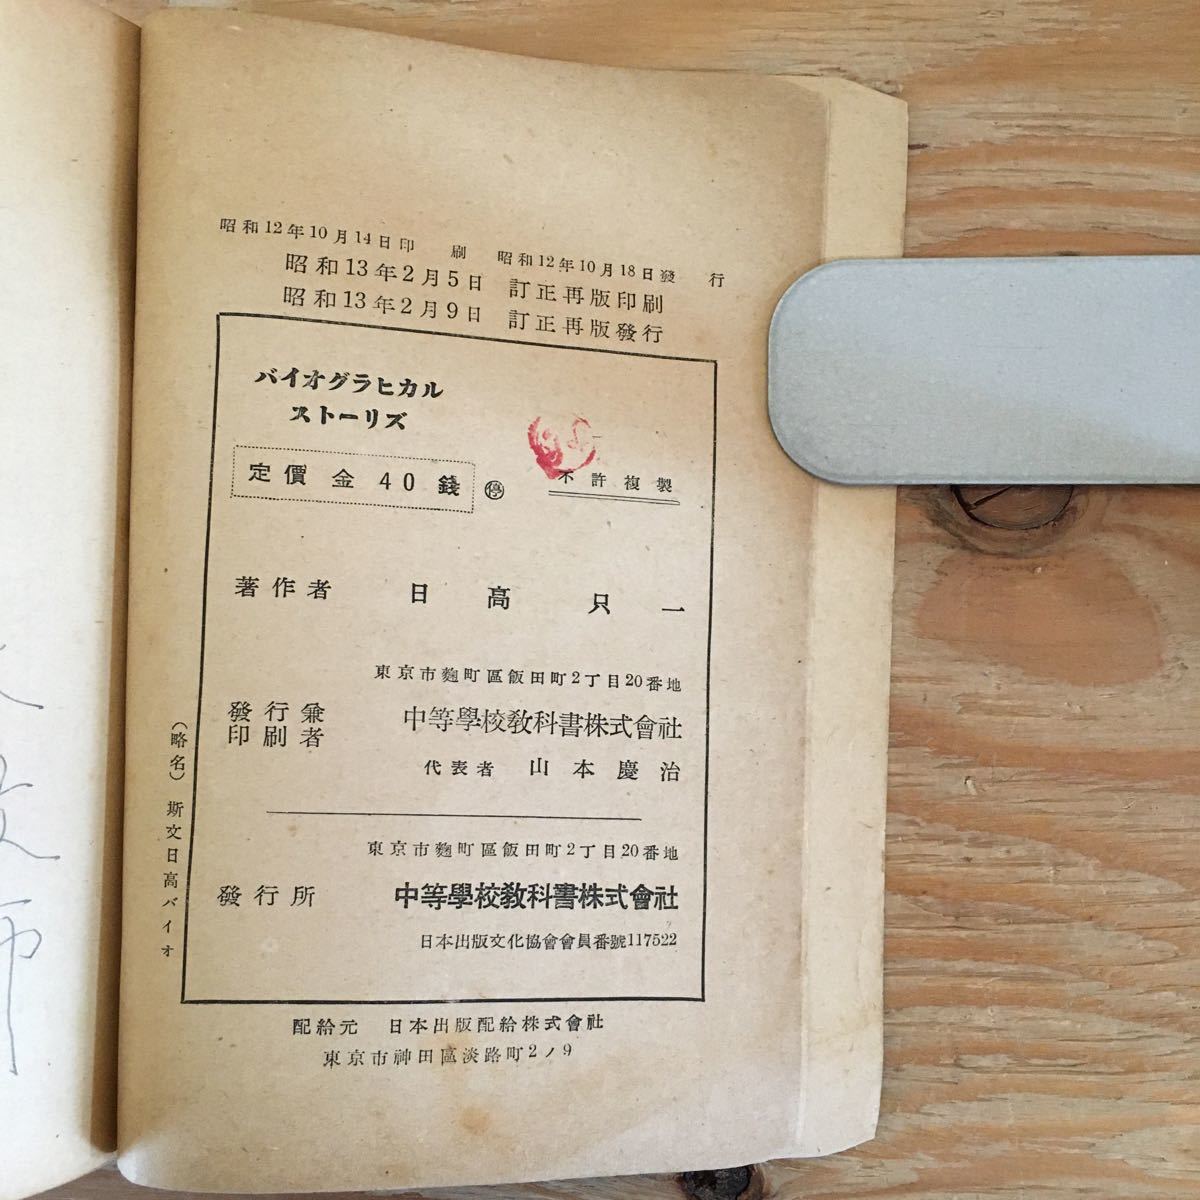 昭和12年10月14日印　刷　昭和12年10月18日發　行
昭和13年2月5日　訂正再版印刷
昭和13年2月9日　訂正再版發行
バイオグラヒカル
ストーリズ
定價　金　40　錢　㊡
不許複製
著作者　日高只一
東京市麴町區飯田町2丁目20番地
發行兼
印刷者　中等學校教科書株式會社
代表者　山本慶治
東京市麴町區飯田町2丁目20番地
發行所　中等學校教科書株式會社
日本出版文化協會會員番號117522
配給元　日本出版配給株式會社
東京市神田區淡路町2ノ9
（略名）斯文日高バイオ